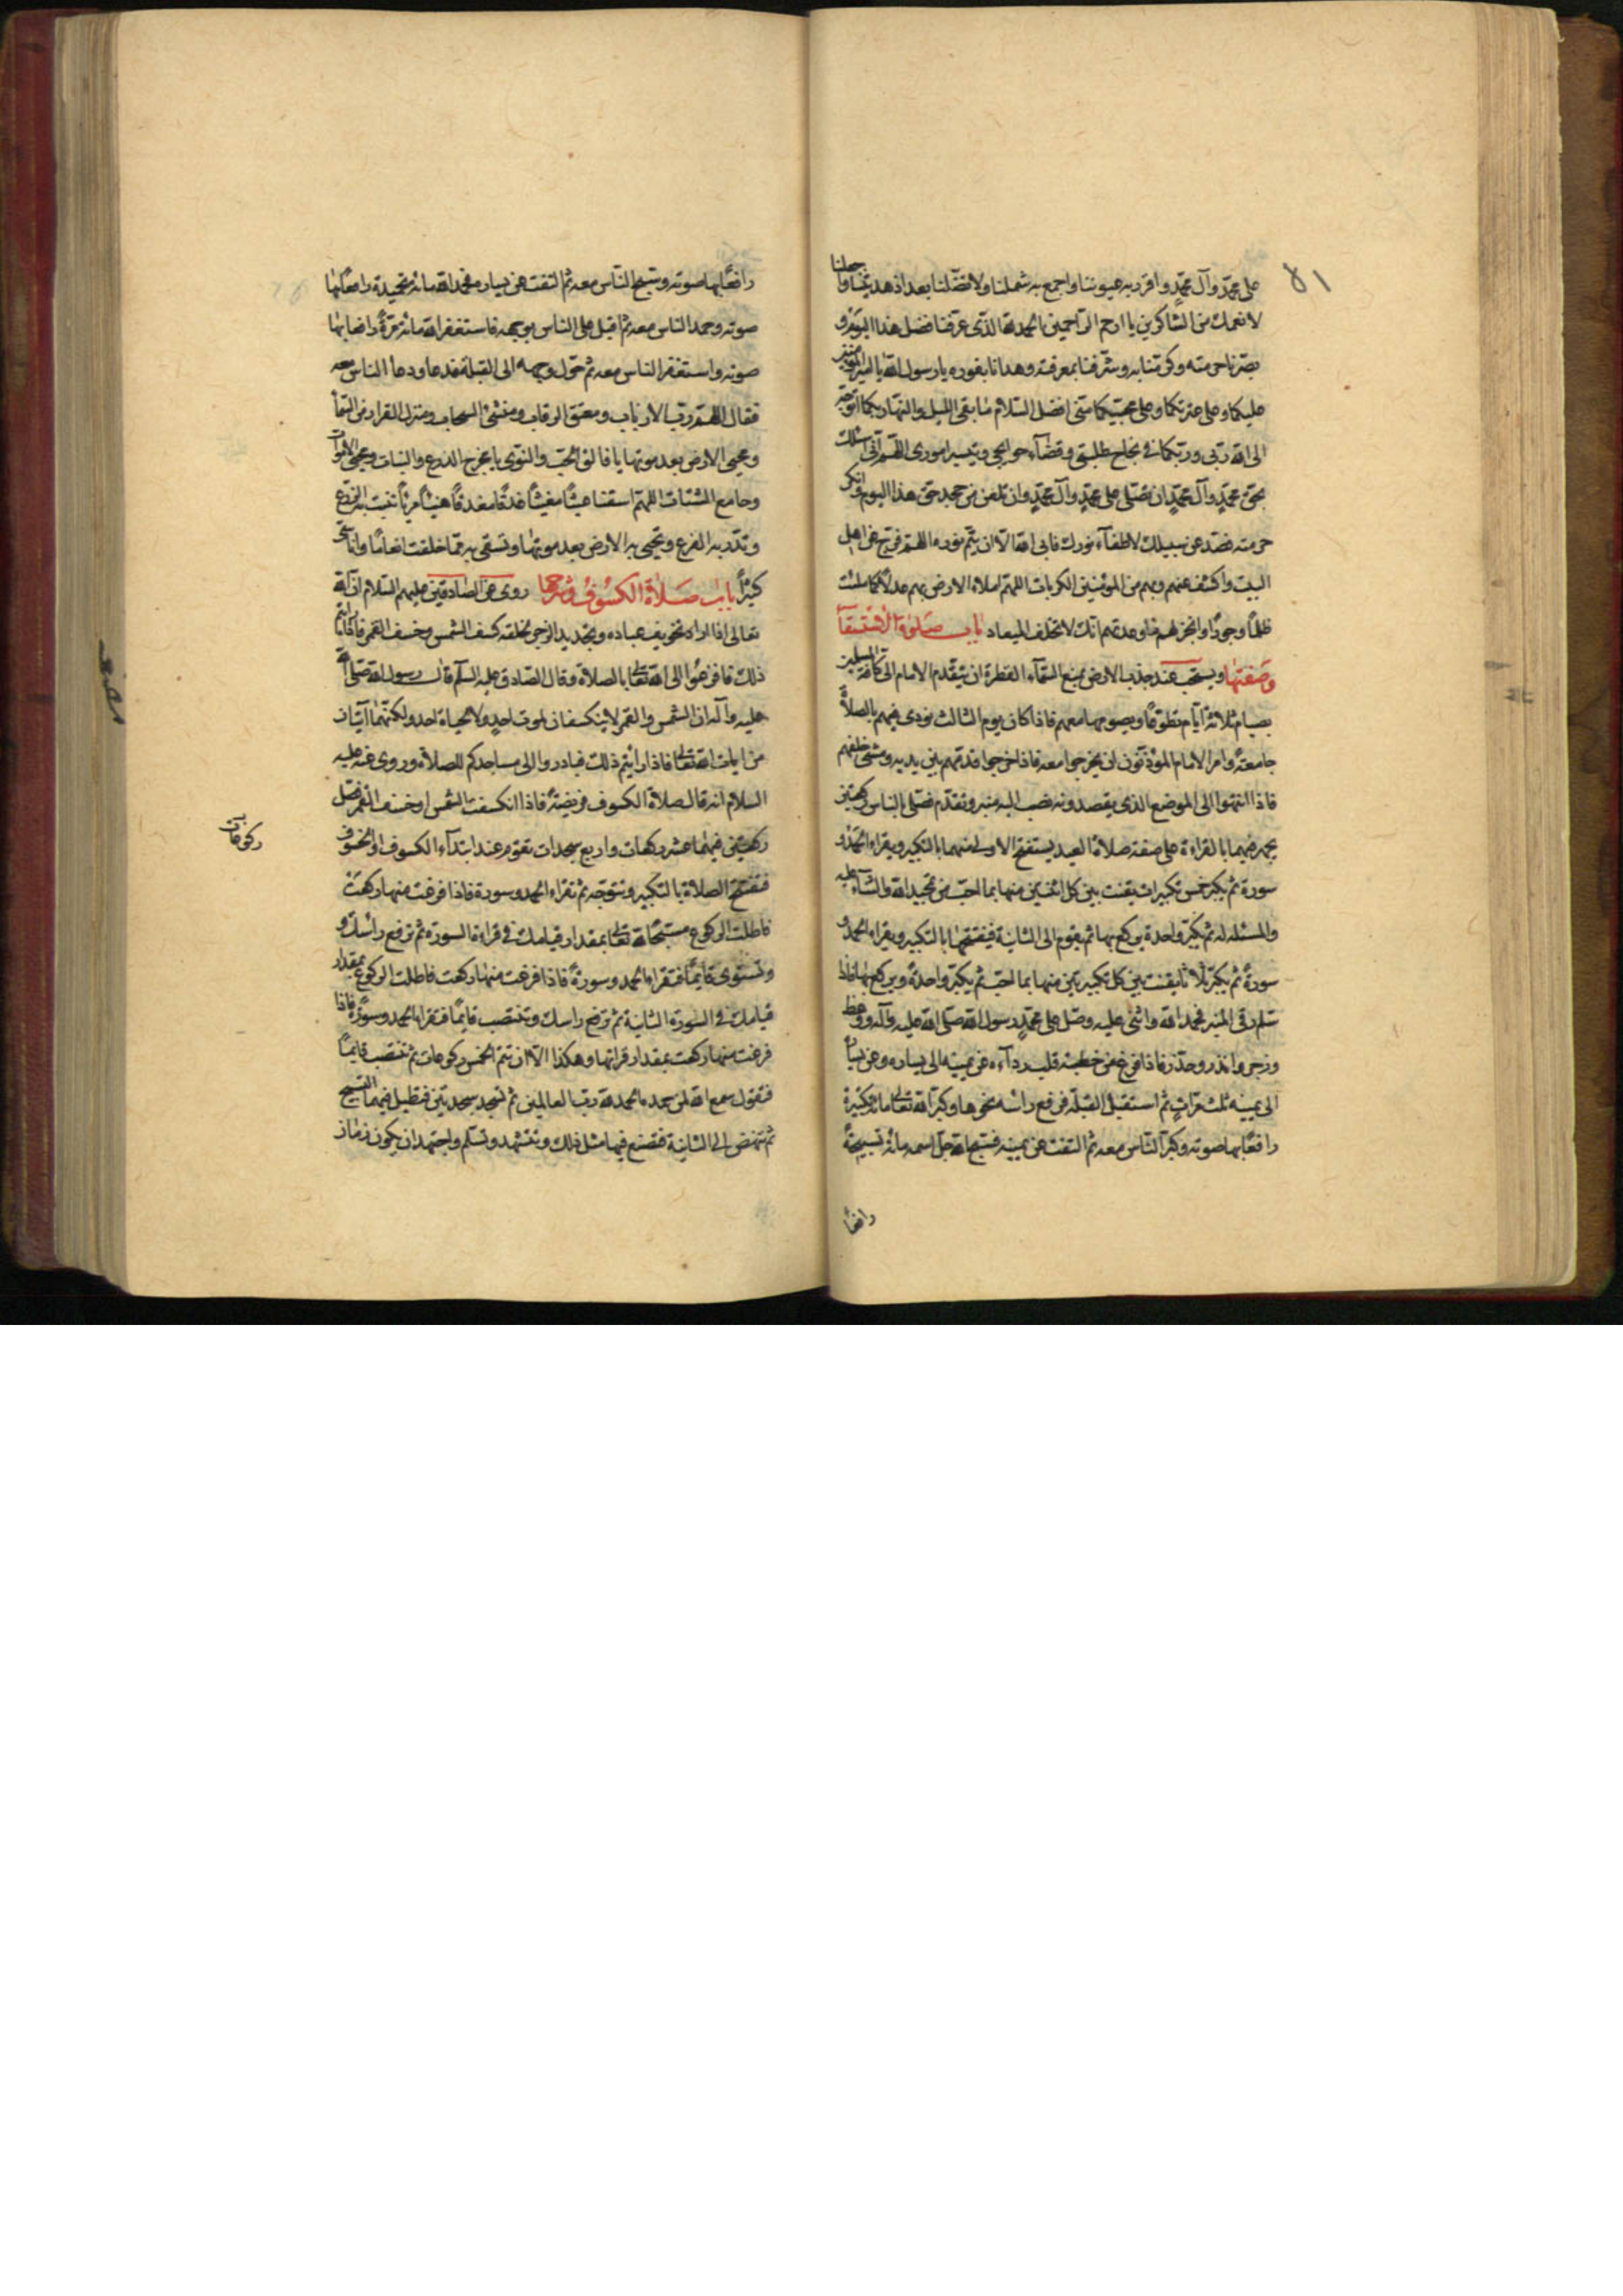 ٨١
على محمد وآل محمد واقرر به عيوننا واجمع به شملنا ولا تضلنا بعد اذ هديتنا واجعلنا
لانعمك من الشاكرين يا ارحم الراحمين الحمد لله الذى عرفنا فضل هذا اليوم و
بصرنا حرمته وكرمنا به وشرفنا بمعرفته وهدانا بنوره يا رسول الله يا امير المؤمنين
عليكما وعلى عترتكما وعلى محبيكما منى افضل السلام ما بقى الليل والنهار بكما اتوجه
الى الله ربى وربكما فى نجاح طلبتى وقضآء حوائجى وتيسير امورى اللهم انى اسئلك
بحق محمد وآل محمد ان تصلى على محمد وآل محمد وان تلعن من جحد حق هذا اليوم وانكر
حرمته فصد عن سبيلك لاطفآء نورك فابى الله الا ان يتم نوره اللهم فرج عن اهل
البيت واكشف عنهم وبهم من المؤمنين الكربات اللهم املاء الارض بهم عدلا كما ملئت
ظلما وجورا وانجز لهم ما وعدتهم انك لا تخلف الميعاد باب صلوة الاستسقآء
وصفتها ويستحب عند جذب الارض بمنع السمآء القطرة ان يتقدم الامام الى كافة المسلمين
بصيام ثلاثة ايام تطوعا ويصومها معهم فاذا كان يوم الثالث نودى فيهم بالصلاة
جامعة وامر الامام المؤذنون ان يخرجوا معه فاذا خرجوا قدمهم بين يديه ومشى خلفهم
فاذا انتهوا الى الموضع الذى يقصدونه نصب اليه منبر وتقدم فصلى بالناس ركعتين
يجهر فيهما بالقراءة على صفة صلاة العيد يستفتح الاولى منهما بالتكبير ويقراء الحمد و
سورة ثم يكبر خمس تكبيرات يقنت بين كل اثنين منها بما احب من تمجيد الله والثنآء عليه
والمسئله له ثم يكبر واحدة يركع بها ثم يقوم الى الثانية فيفتتحها بالتكبير ويقراء الحمد و
سورة ثم يكبر ثلاثا يقنت بين كل تكبيرتين منها بما احب ثم يكبر واحدة ويركع بها فاذا
سلم رقى المنبر فحمد الله واثنى عليه وصل على محمد رسول الله صلى الله عليه وآله ووعظ
وزجر وانذر وحذر فاذا فرغ من خطبته قلب ردآءه عن يمينه الى يساره وعن يساره
الى يمينه ثلث مرات ثم استقبل القبلة فرفع راسه نحوها وكبر الله تعالى مائة تكبيرة
رافعا بها صوته وكبر الناس معه ثم التفت عن يمينه فسبح الله جل اسمه مائة تسبيحة
رافعا
رافعا بها صوته وسبح الناس معه ثم التفت عن يساره فحمد الله مائة تحميدة رافعا بها
صوته وحمد الناس معه ثم اقبل على الناس بوجهه فاستغفر الله مائة مرة رافعا بها
صوته واستغفر الناس معه ثم حول وجهه الى القبلة فدعا ودعا الناس معه
فقال اللهم رب الارباب ومعتق الرقاب ومنشئ السحاب ومنزل القطر من السمآء
ومحيى الارض بعد موتها يا فالق الحب والنوى يا مخرج الزرع والنبات ومحيى الاموات
وجامع الشتات اللهم اسقنا غيثا مغيثا غدقا مغدقا هنيئا مريئا تنبت به الزرع
وتدر به الضرع وتحيى به الارض بعد موتها وتسقى به مما خلقت انعاما واناسى
كثيرا باب صلاة الكسوف وشرحها روى عن الصادقين عليهم السلام ان الله
تعالى اذا اراد تخويف عباده وتجديد الزجر لخلقه كسف الشمس وخسف القمر فاذا رايتم
ذلك فافزعوا الى الله تعالى بالصلاة وقال الصادق عليه السلم قال رسول الله صلى الله
عليه وآله ان الشمس والقمر لا ينكسفان لموت احد ولا لحياة احد ولكنهما آيتان
من ايات الله تعالى فاذا رايتم ذلك فبادروا الى مساجدكم للصلاة وروى عنه عليه
السلام انه قال صلاة الكسوف فريضة فاذا انكسفت الشمس او خسف القمر فصل
ركعتين فيهما عشر ركعات واربع سجدات تقوم عند ابتدآء الكسوف او الخسوف
ركوعات
فتفتتح الصلاة بالتكبير وتتوجه ثم تقراء الحمد وسورة فاذا فرغت منها ركعت
فاطلت الركوع مسبحا لله تعالى بمقدار قيامك فى قراءة السورة ثم ترفع راسك و
وتستوى قايما فتقراء الحمد وسورة فاذا فرغت منها ركعت فاطلت الركوع بمقدار
قيامك فى السورة الثانية ثم ترفع راسك وتنتصب قايما فتقراء الحمد وسورة فاذا
فرغت منها ركعت بمقدار قراتها وهكذا الا ان تتم الخمس ركوعات ثم تنتصب قايما
فتقول سمع الله لمن حمده الحمد لله رب العالمين ثم تسجد سجدتين فتطيل فيهما التسبيح
ثم تنهض الى الثانية فتصنع فيها مثل ذلك وتتشهد وتسلم واجتهد ان يكون زمان